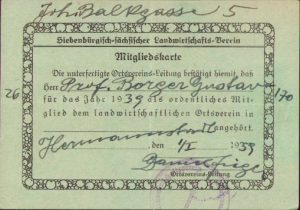 Joh. Balkgasse 5
Siebenbürgisch-sächsischer Landwirtschafts-Verein
Mitgliedskarte
Die unterfertigte Ortsvereins-Leitung bestätigt hiemit, daß
Herr Prof. Borger Gustav
26 /70
für das Jahr 1939 als ordentliches Mitglied
dem landwirtschaftlichen Ortsverein in
Hermannstadt angehört.
am 1/I 1939
Ortsvereins-Leitung